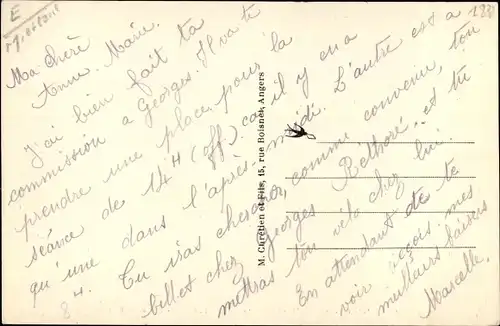 Ma chère
Anne. Marie.
J'ai bien fait ta
commission a Georges. Il va te
prendre une place pour la
séance de 14H (off). ca il y en a
qu'une dans l'après-midi. L'autre est a
84. Tu iras chercher, comme convenu, ton
billet chez Georges Réthoré et tu
mettras ton vélo chez lui.
En attendant de te
voir reçois mes
meilleurs baisers
Marcelle.
M. Chrétien et Fils, 15, rue Boisnet, Angers
E